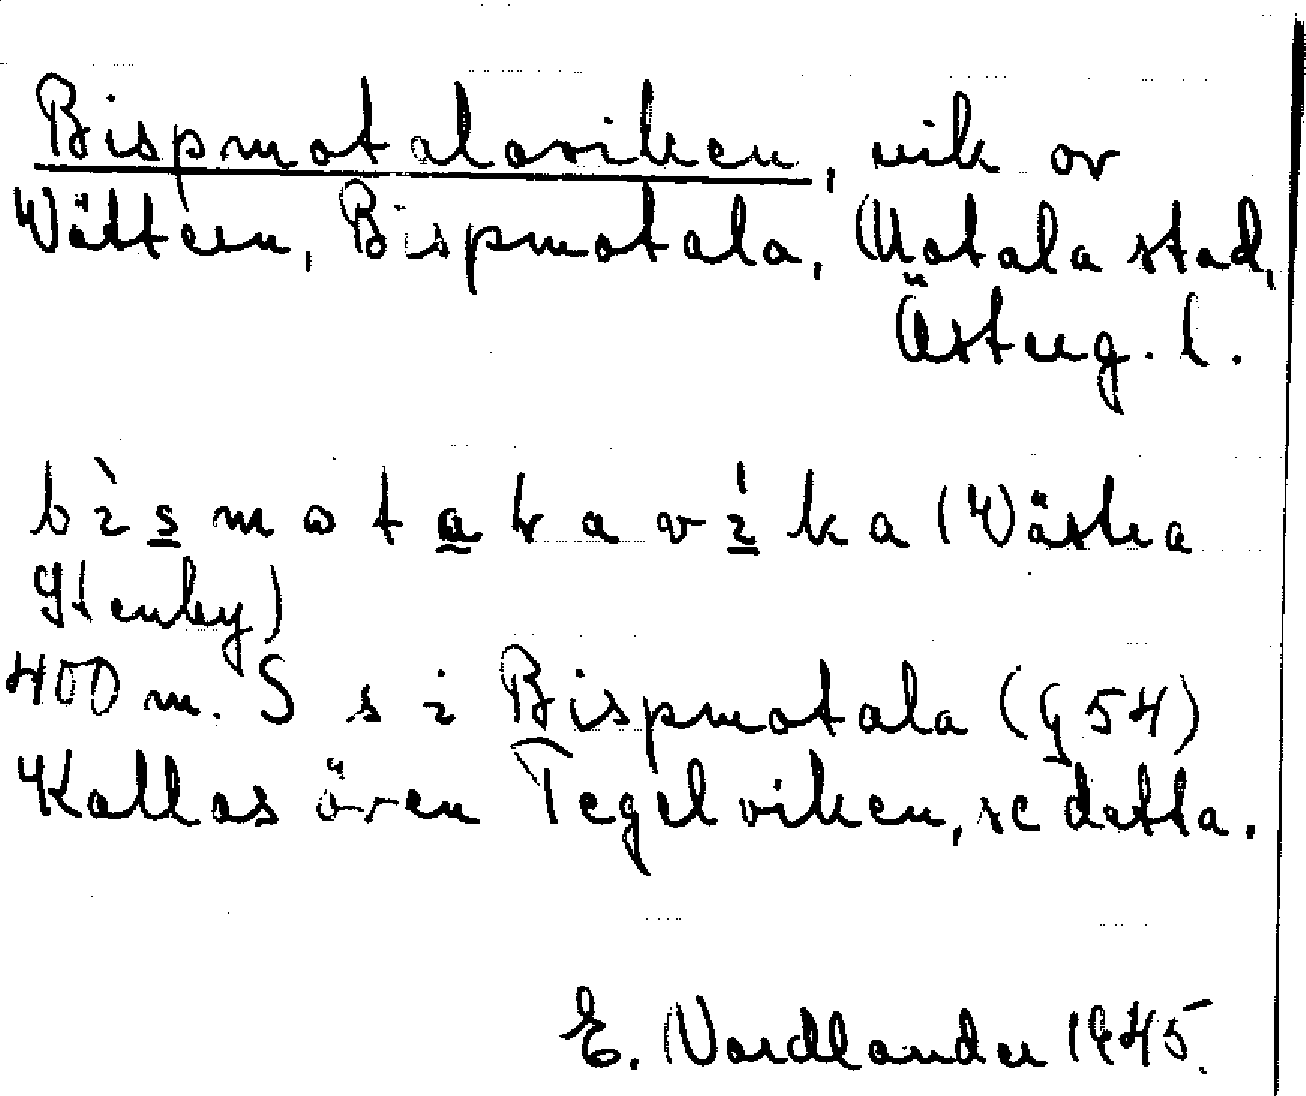 Bispmotalaviken, vik av
Vättern, Bispmotala, Motala stad,
Österg. l.
bìsmotalaví́ka (Västra
Stenby)
400 m. S s i Bispmotala (G 54)
Kallas även Tegelviken, se detta.
E. Nordlander 1945.